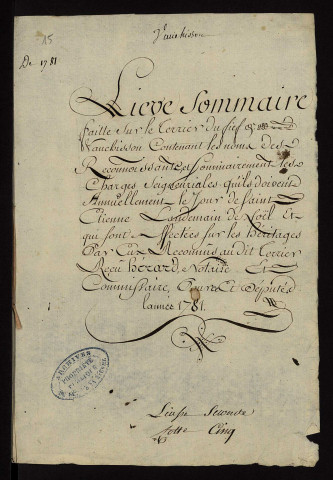 15
De 1781
Lieve Sommaire
faitte sur le Terrier du fief
Vauebisson Contenant les noms des
Reconnoissants et Sommairement les
Charges Seigneuriales qu'ils doivent
Annuellement le Jour de Saint
Etienne Landemain de Noël Et
qui sont affectées sur les Héritages
Par Eux Reconnus audit Terrier
Reçu hérard, Notaire Et
Commissaire, pour Ce députés
lannée 1781.
ARCHIVES
PROPRIÉTÉ
PUBLIQUE
Liasse Seconde
Cotte Cinq